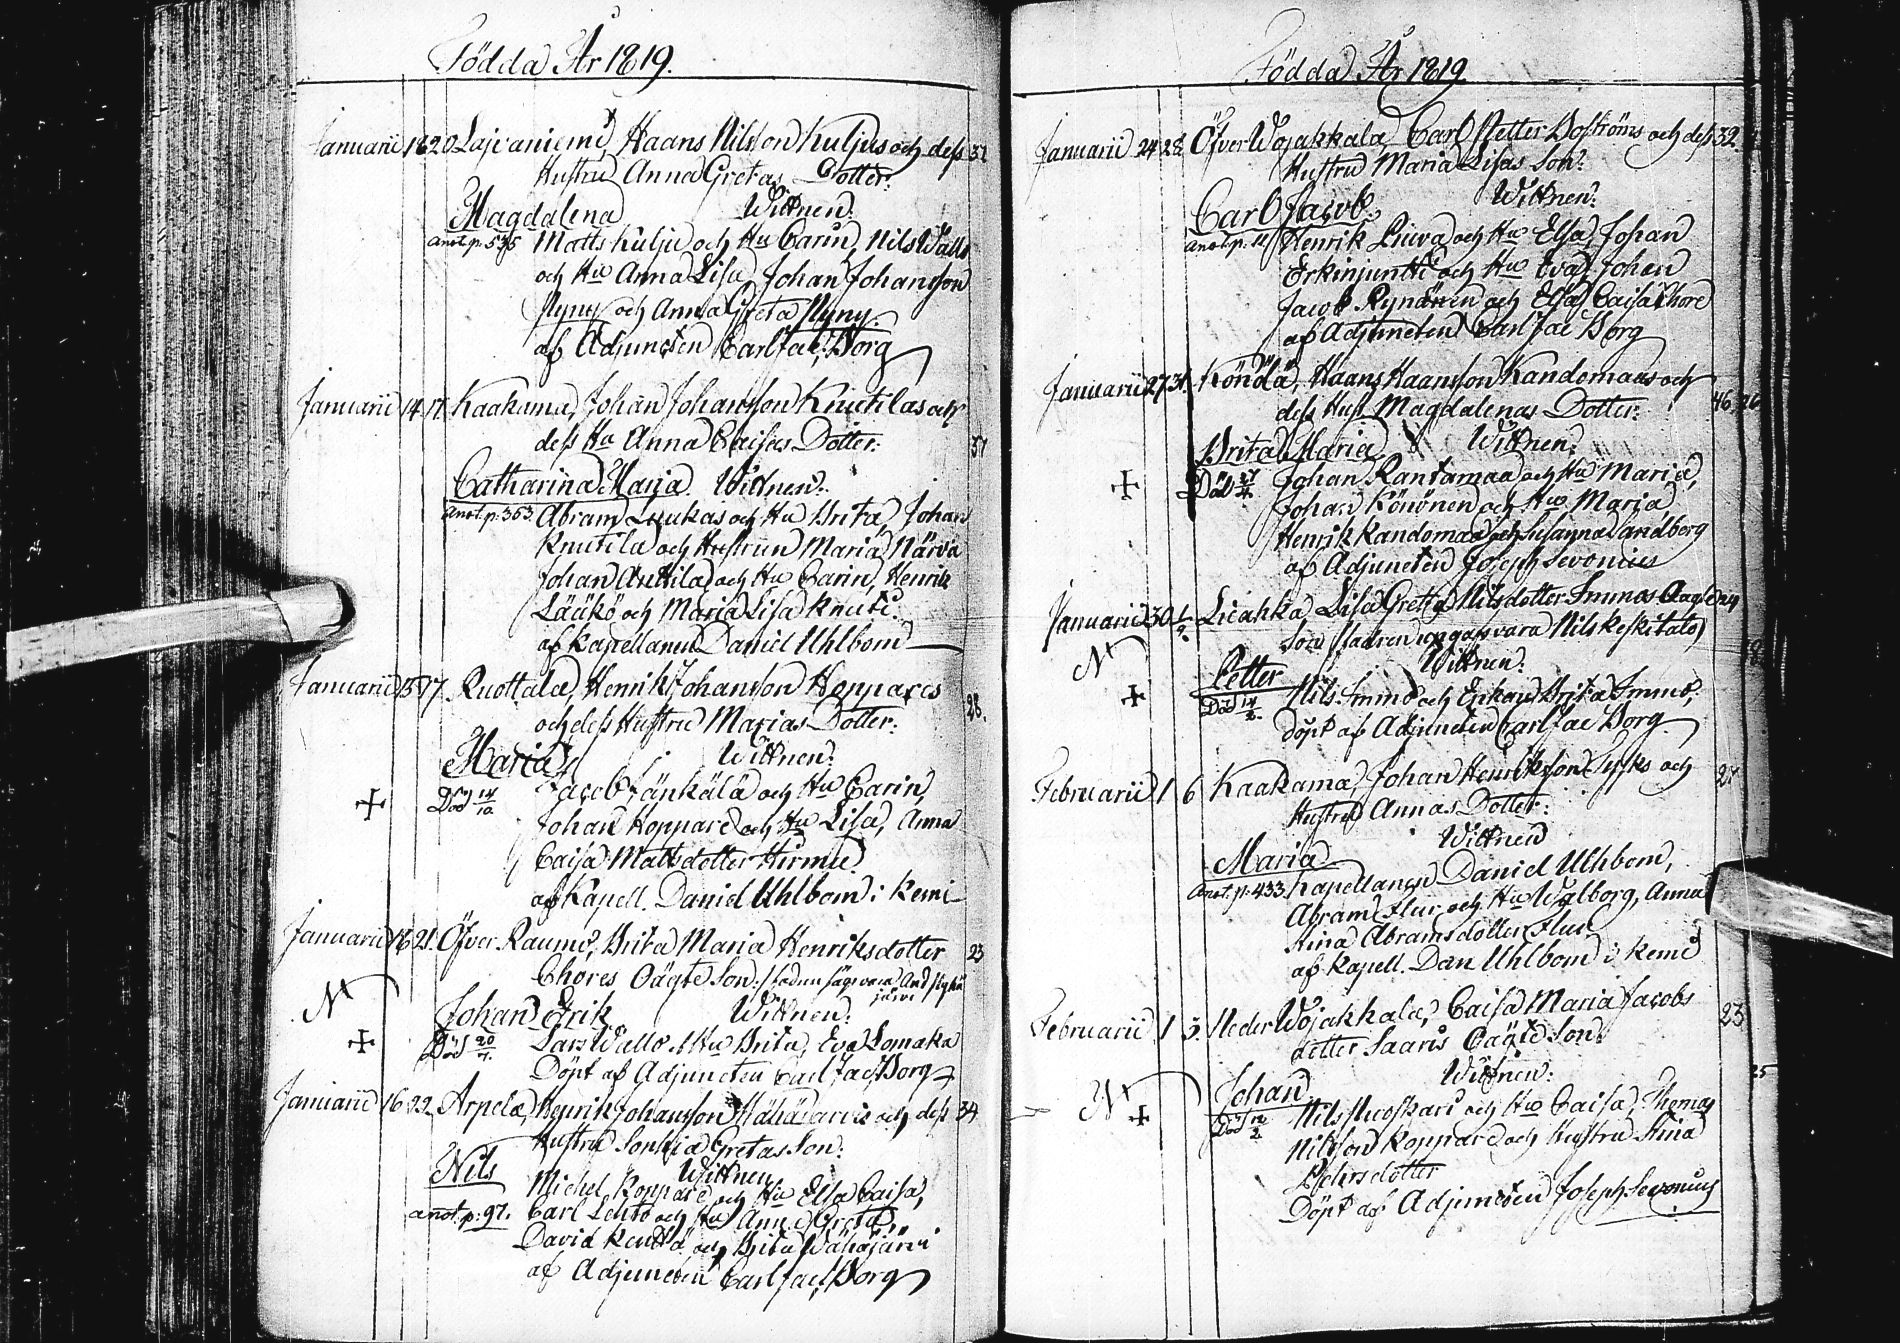 Födda År 1819.
Januarii 16 20 Lajvaniemi, Haans Nilsson Kuljus och dess 32
Hustru Anna Gretas Dotter:
Magdalena Wittnen:
anot. p. 535 Matts Kulju och Hu Carin, Nils Wallo
och Hu Anna Lisa, Johan Johansson
Nyny och Anna Greta Nyny.
af Adjuncten Carl Jac. Borg
Januarii 14 17. Kaakama, Johan Johansson Knutilas och
dess Hu Anna Caisas Dotter: 37
Catharina Maria Wittnen:
Anot. p. 363. Abram Luukas och Hu Brita, Johan
Knutila och Hustrun Maria, Närvä
Johan Anttila och Hu Carin, Henrik
Läükö och Maria Lisa Knuti:
af Kapellanen Daniel Uhlbom
Januarii 15 17. Ruottala, Henrik Johansson Koppares 28.
och dess Hustru Marias Dotter:
Maria Wittnen:
Död 14/10. Jacob Jänkälä och Hu Carin,
Johan Koppare och Hu Lisa, Anna
Caisa Mattsdotter Hirmu.
af Kapell. Daniel Uhlbom i Kemi
Januarii 16 21. Öfver Raumo, Brita Maria Henriksdotter 23
Chores Oägte Son: fadren säges vara And. Pyhä
järvi
N
Johan Erik Wittnen:
Död 20/7. Lars Wallo Hu Brita, Eva Lomaka
Döpt af Adjuncten Carl Jac. Borg
Januarii 16 22 Arpela, Henrik Johansson Wähäjärvis och dess 34
Hustru Sophia Gretas Son:
Nils Wittnen
Michel Koppare och Hu Elsa Caisa,
anot. p. 97. Carl Lehto och Hu Anna Greta,
David Kenttä och Brita Wähäjärvi
af Adjuncten Carl Jac. Borg
Födda År 1819
Januarii 24 28 Öfver Wojakkala, Carl Petter Boströms och dess 32.
Hustru Maria Lisas Son:
Carl Jacob Wittnen:
anot. p. 11 Henrik Liiva och Hu Elsa, Johan
Erkinjuntti och Hu Eva, Johan
Jacob Rynänen och Elsa Caisa Chore
af Adjuncten Carl Jac Borg
Januarii 27 31. Könölä, Haans Haansson Kandomaas och
dess Hust. Magdalenas Dotter: 46
Brita Maria Wittnen:
Död 27/4. Johan Rantamaa och Hu Maria,
Johan Könönen och Hu Maria,
Henrik Kandomaa och Susanna Sandberg
af Adjuncten Joseph Sevonius
Januarii 30 1/2 Liakka, Lisa Greta Nilsdotter Immos Oägte
Son fadren uppgafs vara Nils Keskitalo
N
Petter Wittnen:
Död 14/2. Nils Immo och Enkan Brita Immo,
döpt af Adjuncten Carl Jac Borg.
Februarii 1 6 Kaakama, Johan Henriksson Sysks och 27
Hustru Annas Dotter:
Wittnen
Maria
Anot. p. 433. Kapellanen Daniel Uhlbom,
Abram Flur och Hu Walborg, Anna
Stina Abramsdotter Flur
af Kapell. Dan Uhlbom i Kemi
Februarii 1 5. Neder Wojakkala, Caisa Maria Jacobs 23
dotter Saaris Oägte Son:
Wittnen:
25
N
Johan
Död 12/2 Nils Nuoskari och Hu Caisa, Thomas
Nilsson Koppare och Hustru Stina
Pehrsdotter
Döpt af Adjuncten Joseph Sevonius